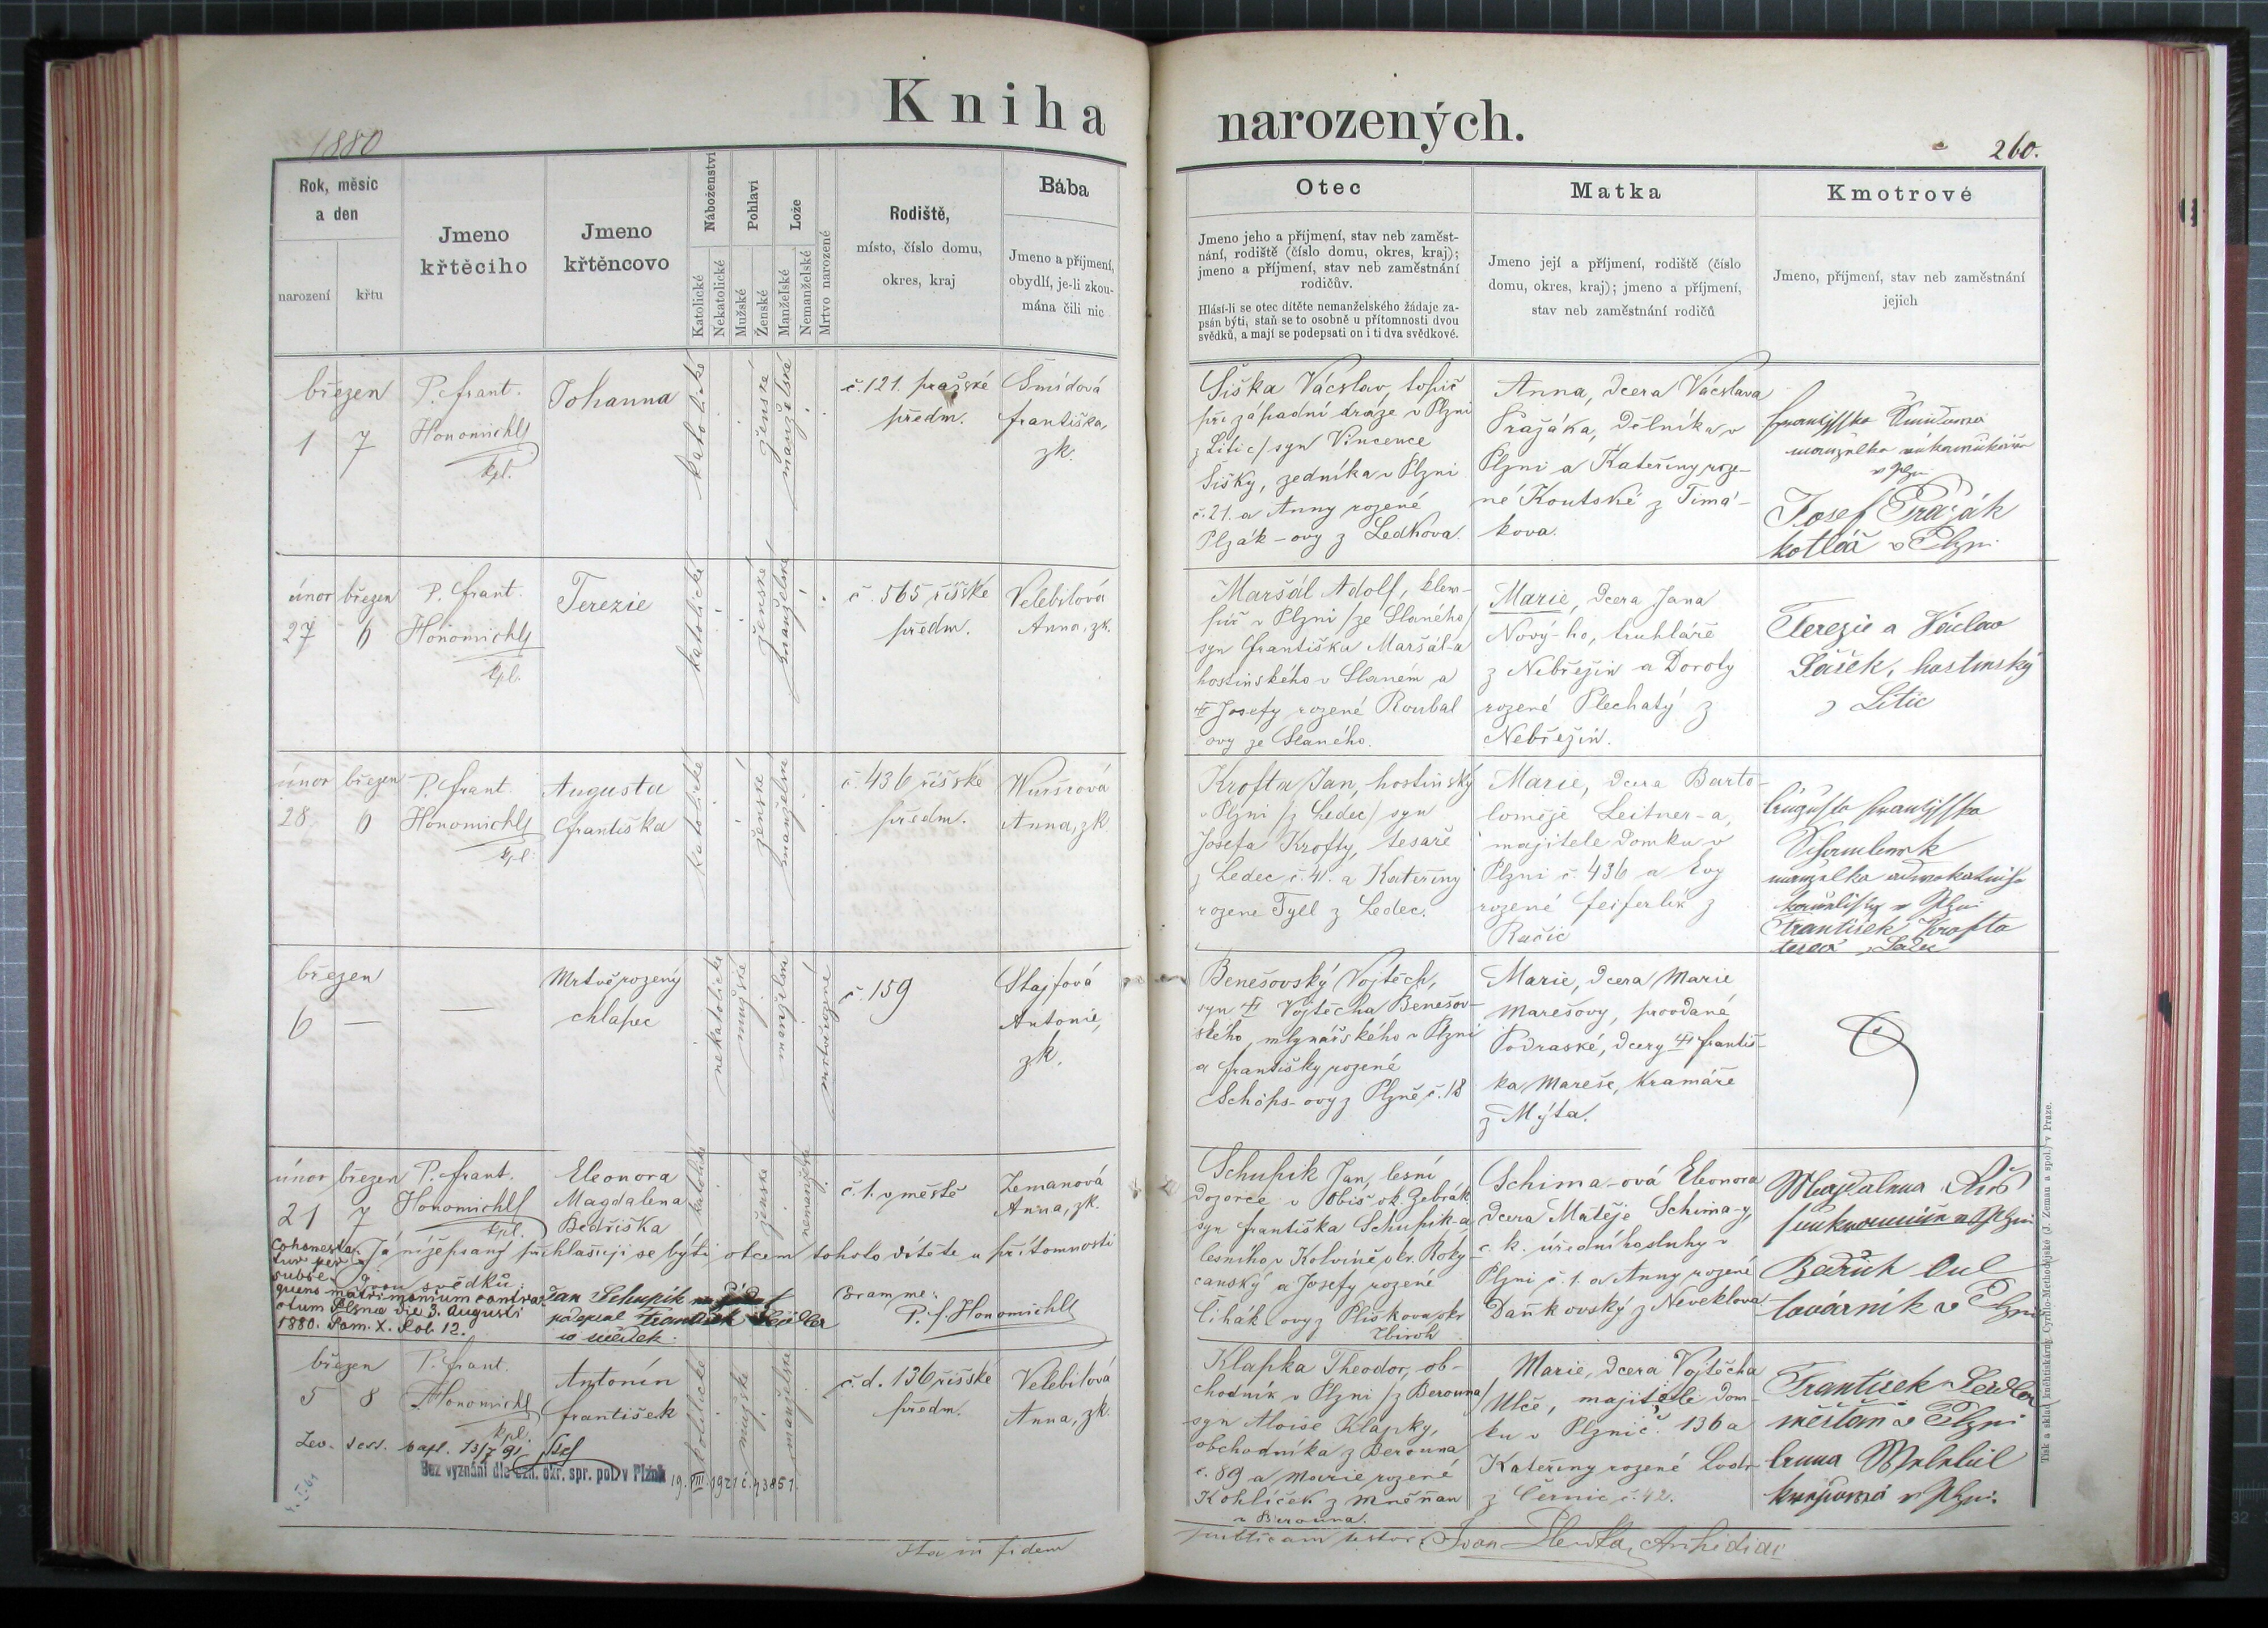 Kniha
narozených.
1880
260.
Rok, měsíc
a den
narození
křtu
Jmeno
křtěciho
Jmeno
křtěncovo
Náboženství
Katolické
Nekatolické
Pohlaví
Mužské
Ženské
Lože
Manželské
Nemanželské
Mrtvo narozené
Rodiště,
místo, číslo domu,
okres, kraj
Bába
Jmeno a příjmení,
obydlí, je-li zkou-
mána čili nic
Otec
Jmeno jeho a příjmení, stav neb zaměst-
nání, rodiště (číslo domu, okres, kraj);
jmeno a příjmení, stav neb zaměstnání
rodičův.
Hlásí-li se otec dítěte nemanželského žádaje za-
psán býti, staň se to osobně u přítomnosti dvou
svědků, a mají se podepsati on i ti dva svědkové.
Matka
Jmeno její a příjmení, rodiště (číslo
domu, okres, kraj); jmeno a příjmení,
stav neb zaměstnání rodičů
Kmotrové
Jmeno, příjmení, stav neb zaměstnání
jejich
březen
1 7
P. Frant.
Honomichl
kpl.
Johanna
katolické
ženské
manželské
č. 121. pražské
předm.
Šmídová
Františka,
zk.
Šiška Václav, topič
při západní dráze v Plzni
z Litic / syn Vincence
Šišky, zedníka v Plzni
č. 21. a Anny rozené
Plzák-ovy z Ledkova.
Anna, dcera Václava
Pražáka, dělníka v
Plzni a Kateřiny roze-
né Koutské z Timá-
kova.
Josef Pražák
kotlář v Plzni
únor březen
27 6
P. Frant.
Honomichl
kpl.
Terezie
katolické
ženské
manželské
č. 565 říšské
předm.
Velebilová
Anna, zk.
Maršál Adolf, klem-
píř v Plzni / ze Slaného /
syn Františka Maršál-a
hostinského v Slaném a
Josefy rozené Roubal
ovy ze Slaného.
Marie, dcera Jana
Nový-ho, truhláře
z Nebřežin a Doroty
rozené Plechatý z
Nebřežin.
Terezie a Václav
Sašek, hostinský
z Litic
únor březen
28 6
P. Frant.
Honomichl
kpl.
Augusta
Františka
katolické
ženské
manželské
č. 436 říšské
předm.
Anna, zk.
Krofta Jan, hostinský
v Plzni / z Ledec / syn
Josefa Krofty, tesaře
z Ledec č. 41. a Kateřiny
rozené Tyll z Ledec.
Marie, dcera Barto-
loměje Leitner-a,
majitele domku v
Plzni č. 436 a Evy
rozené Feiferlík z
Račic
František Krofta
březen
6 —
—
Mrtvěrozený
chlapec
nekatolické
mužské
manželské
mrtvěrozené
č. 159
Stajfová
Antonie,
zk.
Benešovský Vojtěch,
syn Vojtěcha Benešov-
ského, mlynářského v Plzni
a Františky rozené
Schöps-ovy z Plzně č. 18
Marie, dcera Marie
Marešovy, provdané
Podraské, dcery Františ-
ka Mareše, kramáře
z Mýta.
únor březen
21 7
P. Frant.
Honomichl
kpl.
Eleonora
Magdalena
Bedřiška
katolické
ženské
nemanželské
č. 1. v městě
Zemanová
Anna, zk.
Já nížepsaný přihlašuji se býti otcem tohoto dítěte u přítomnosti
dvou svědků:
Jan Schupík
František Seidler
Coram me:
P. F. Honomichl
Cohonesta-
tur per
subse-
quens matrimonium contra-
ctum Plznae die 3. Augusti
1880. Tom. X. Fol. 12.
Schupík Jan, lesní
dozorce v Obiš ok. Žebrák
syn Františka Schupík-a,
lesního v Kolvíně okr. Roky-
canský a Josefy rozené
Čihák-ovy z Plískova okr.
Zbiroh
Schima-ová Eleonora
dcera Matěje Schima-y,
c. k. úředního sluhy v
Plzni č. 1. a Anny rozené
Daňkovský z Neveklova.
továrník v Plzni
březen
5 8
P. Frant.
Honomichl
kpl.
Antonín
František
katolické
mužské
manželské
č. d. 136 říšské
předm.
Velebilová
Anna, zk.
Bez vyznání dle ozn. okr. spr. pol. v Plzni 19. VIII. 1921 č. 43851.
Klapka Theodor, ob-
chodník v Plzni / z Berouna /
syn Aloise Klapky,
obchodníka z Berouna
č. 89 a Marie rozené
Kohlíček z Mněňan
u Berouna.
Marie, dcera Vojtěcha
Ulče, majitele dom-
ku v Plzni č. 136 a
Kateřiny rozené
z Černic č. 42.
František Seidler
měšťan v Plzni
Ita in fidem
publicam testor
Tisk a sklad kněhtiskárny Cyrillo-Methodějské (J. Zeman a spol.) v Praze.